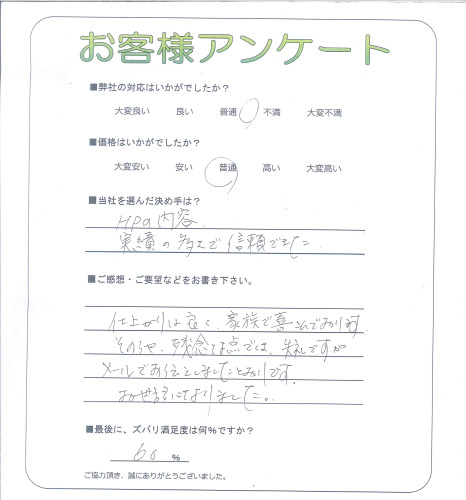 お客様アンケート
■弊社の対応はいかがでしたか？
大変良い 良い 普通 不満 大変不満
■価格はいかがでしたか？
大変安い 安い 普通 高い 大変高い
■当社を選んだ決め手は？
HPの内容.
実績の多さで信頼できた
■ご感想・ご要望などをお書き下さい。
仕上がりは良く、家族で喜んでおります.
残念な点では、失礼ですが
メールでお伝えしましたとおりです.
お世話になりました。
■最後に、ズバリ満足度は何％ですか？
60 ％
ご協力頂き、誠にありがとうございました。